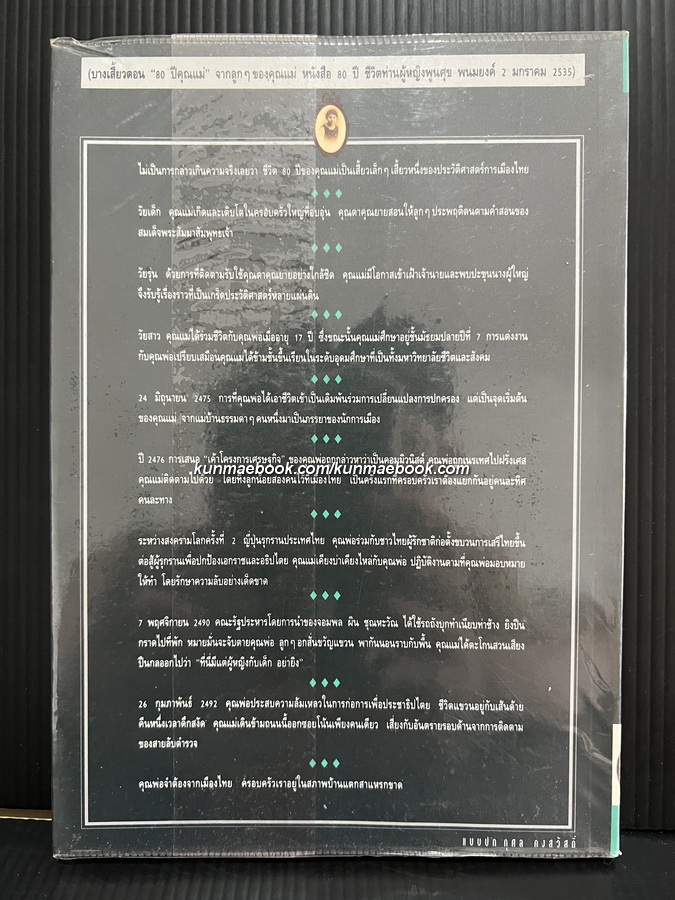 (บางเสี้ยวตอน "80 ปีคุณแม่" จากลูกๆของคุณแม่ หนังสือ 80 ปี ชีวิตท่านผู้หญิงพูนศุข พนมยงค์ 2 มกราคม 2535)
ไม่เป็นการกล่าวเกินความจริงเลยว่า ชีวิต 80 ปีของคุณแม่เป็นเสี้ยวเล็กๆเสี้ยวหนึ่งของประวัติศาสตร์การเมืองไทย
วัยเด็ก คุณแม่เกิดและเติบโตในครอบครัวใหญ่ที่อบอุ่น คุณตาคุณยายสอนให้ลูกๆประพฤติตนตามคำสอนของ
สมเด็จพระสัมมาสัมพุทธเจ้า
วัยรุ่น ด้วยการที่ติดตามรับใช้คุณตาคุณยายอย่างใกล้ชิด คุณแม่มีโอกาสเข้าเฝ้าเจ้านายและพบปะขุนนางผู้ใหญ่
จึงรับรู้เรื่องราวที่เป็นเกร็ดประวัติศาสตร์หลายแผ่นดิน
วัยสาว คุณแม่ได้ร่วมชีวิตกับคุณพ่อเมื่ออายุ 17 ปี ซึ่งขณะนั้นคุณแม่ศึกษาอยู่ชั้นมัธยมปลายปีที่ 7 การแต่งงาน
กับคุณพ่อเปรียบเสมือนคุณแม่ได้ข้ามชั้นขึ้นเรียนในระดับอุดมศึกษาที่เป็นทั้งมหาวิทยาลัยชีวิตและสังคม
24 มิถุนายน 2475 การที่คุณพ่อได้เอาชีวิตเข้าเป็นเดิมพันร่วมการเปลี่ยนแปลงการปกครอง แต่เป็นจุดเริ่มต้น
ของคุณแม่ จากแม่บ้านธรรมดาๆคนหนึ่งมาเป็นภรรยาของนักการเมือง
ปี 2476 การเสนอ "เค้าโครงการเศรษฐกิจ" ของคุณพ่อถูกกล่าวหาว่าเป็นคอมมิวนิสต์ คุณพ่อถูกเนรเทศไปฝรั่งเศส
kunmaebook.com/kunmaebook.com
คุณแม่ติดตามไปด้วย โดยทิ้งลูกน้อยสองคนไว้ที่เมืองไทย เป็นครั้งแรกที่ครอบครัวเราต้องแยกกันอยู่คนละทิศ
คนละทาง
ระหว่างสงครามโลกครั้งที่ 2 ญี่ปุ่นรุกรานประเทศไทย คุณพ่อร่วมกับชาวไทยผู้รักชาติก่อตั้งขบวนการเสรีไทยขึ้น
ต่อสู้ผู้รุกรานเพื่อปกป้องเอกราชและอธิปไตย คุณแม่เคียงบ่าเคียงไหล่กับคุณพ่อ ปฏิบัติงานตามที่คุณพ่อมอบหมาย
ให้ทำ โดยรักษาความลับอย่างเด็ดขาด
7 พฤศจิกายน 2490 คณะรัฐประหารโดยการนำของจอมพล ผิน ชุณหะวัณ ได้ใช้รถถังบุกทำเนียบท่าช้าง ยิงปืน
กราดไปที่พัก หมายมั่นจะจับตายคุณพ่อ ลูกๆอกสั่นขวัญแขวน พากันนอนราบกับพื้น คุณแม่ได้ตะโกนสวนเสียง
ปืนกลออกไปว่า "ที่นี่มีแต่ผู้หญิงกับเด็ก อย่ายิง"
26 กุมภาพันธ์ 2492 คุณพ่อประสบความล้มเหลวในการก่อการเพื่อประชาธิปไตย ชีวิตแขวนอยู่กับเส้นด้าย
คืนหนึ่งเวลาดึกสงัด คุณแม่เดินข้ามถนนนี้ออกซอยโน้นเพียงคนเดียว เสี่ยงกับอันตรายรอบด้านจากการติดตาม
ของสายลับตำรวจ
คุณพ่อจำต้องจากเมืองไทย ครอบครัวเราอยู่ในสภาพบ้านแตกสาแหรกขาด
แบบปก กุศล คงสวัสดิ์